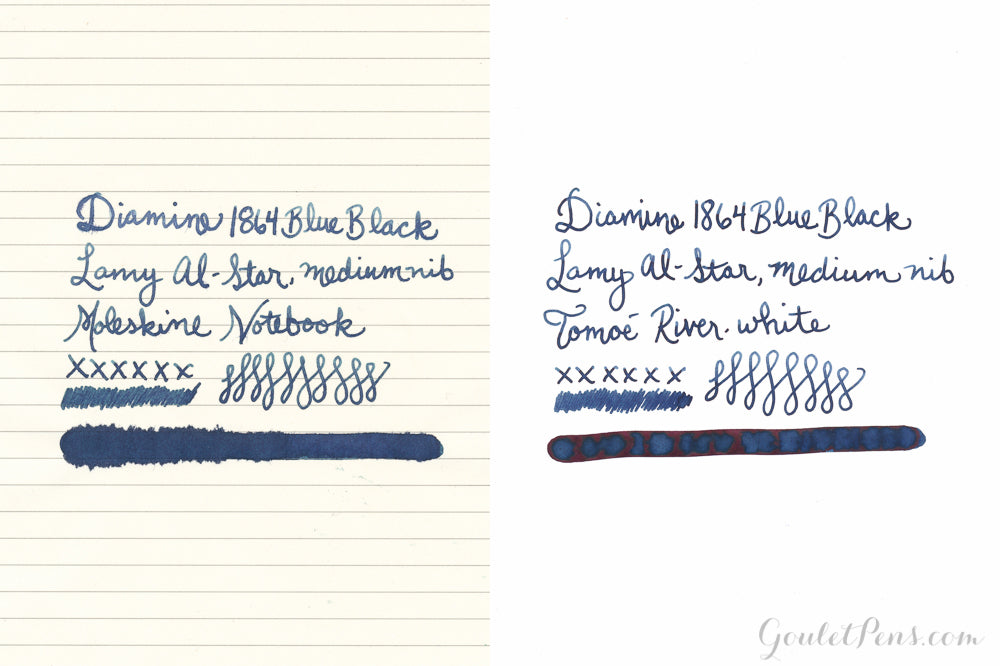 Diamine 1864 Blue Black
Lamy Al-Star, medium nib
Moleskine Notebook
xxxxxx
Diamine 1864 Blue Black
Lamy Al-Star, medium nib
Tomoé River. white
xx xxxx
GouletPens.com